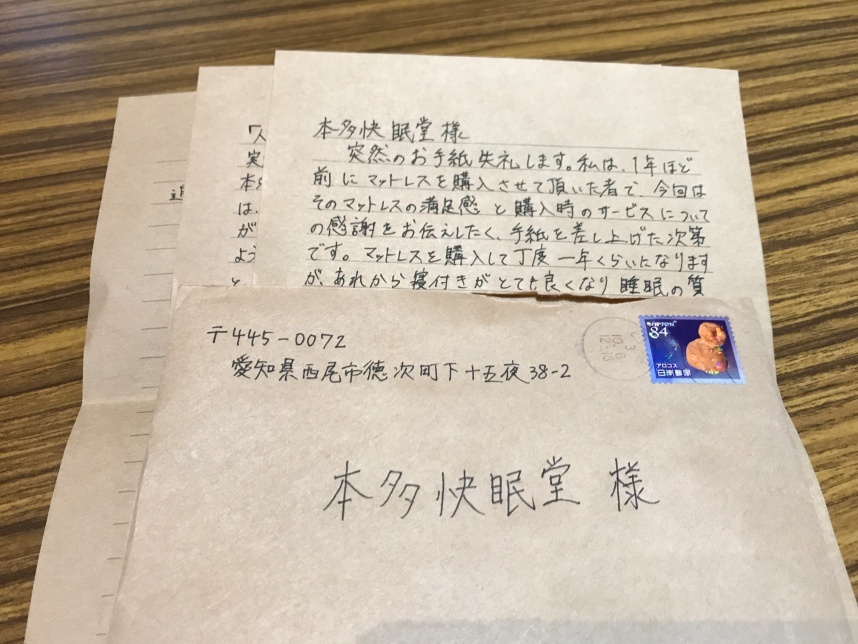 本多快眠堂様
突然のお手紙失礼します。私は、1年ほど
前にマットレスを購入させて頂いた者で、今回は
そのマットレスの満足感と購入時のサービスについて
の感謝をお伝えしたく、手紙を差し上げた次第
です。マットレスを購入して丁度一年くらいになります
が、あれから寝付きがとても良くなり睡眠の質
実
は、
が
よう
と
〒445-0072
愛知県西尾市徳次町下十五夜38-2
84
アロコス
日本郵便
本多快眠堂 様